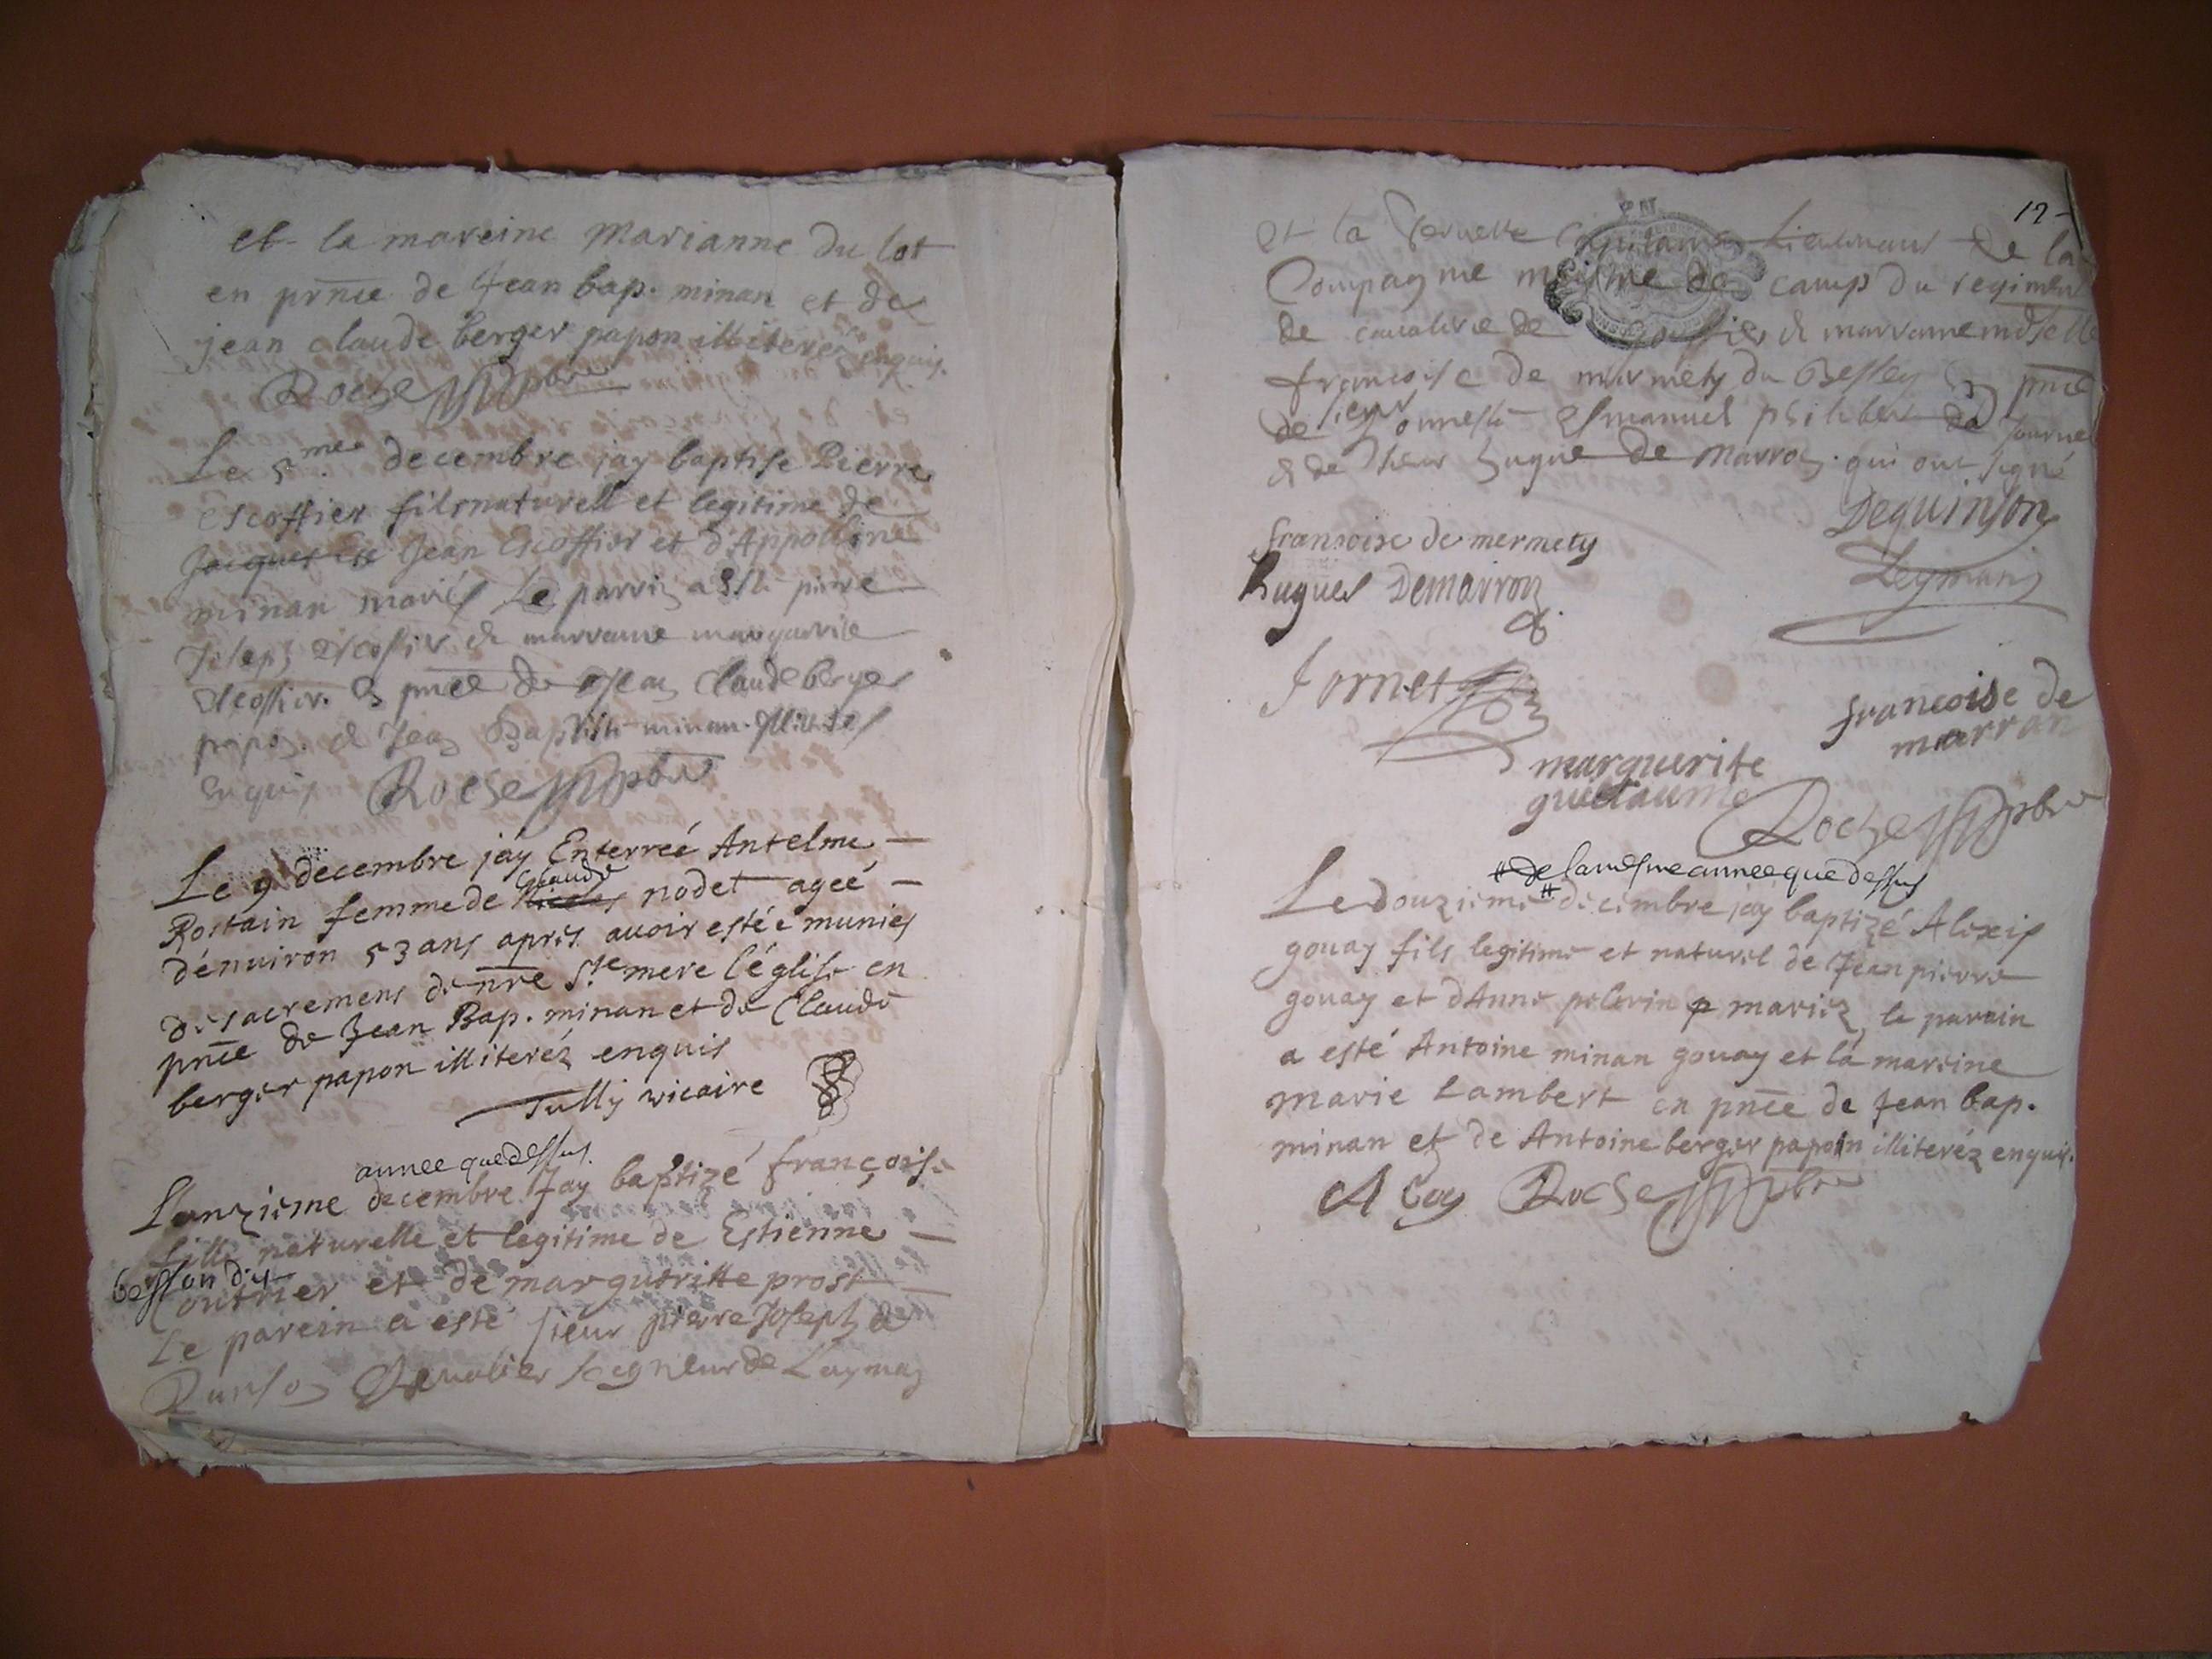 et la mareine Marianne du lot
en prnce de Jean bap. minan et de
jean claude berger papon illiterez enquis.
Roche pbre
Le 5me decembre jay baptise Pierre
escoffier fils naturell et legitime de
Jacques Jean Escoffier et d'Appolline
minan mariés Le parrin a esté pierre
Joseph Escofier & marraine marguerite
Escoffier. En pnce de Jean Claude berger
papon & Jean Baptiste minan. Illiterés
Enquis Roche pbre
Le 9 decembre jay Enterreé Antelme
claude
Rostain femme de nodet ageé
dénuiron 53 ans aprés auoir estée munies
des sacremens de nre Ste mere l'églisé en
pnce de Jean Bap. minan et de Claude
berger papon illiteréz enquis
Tully vicaire
annee que dessus
Lonzième decembre Jay baptizé françoise
fille naturelle et legitime de Estienne
besson dit
Coutrier et de margueritte prost
Le parein a esté sieur pierre Joseph de
Quinson Chevalier segneur de Leyman
12
et la Servette Capitaine Lieutenant de la
Compagnie mestre de camp du regiment
de cavalerie de & marraine mdselle
francoise de mermety du Bessey En pnce
sieur
de Esmanuel philibert de Jornet
& de sieur hugue de Marron. qui ont signé
Dequinson
Leyman
francoise de mermety
hugues Demarron
Jornet
francoise de
marran
marguerite
guillaume
Roche pbre
# de la mesme annee que dessus
Le douzieme # decembre jay baptizé Alexis
gouay fils legitime et naturel de Jean pierre
gouay et d'Anne pelerin p mariez, le parain
a esté Antoine minan gouay et la mareine
marie Lambert en pnce de Jean bap.
minan et de Antoine berger papoin illiteréz enquis.
Roche pbre